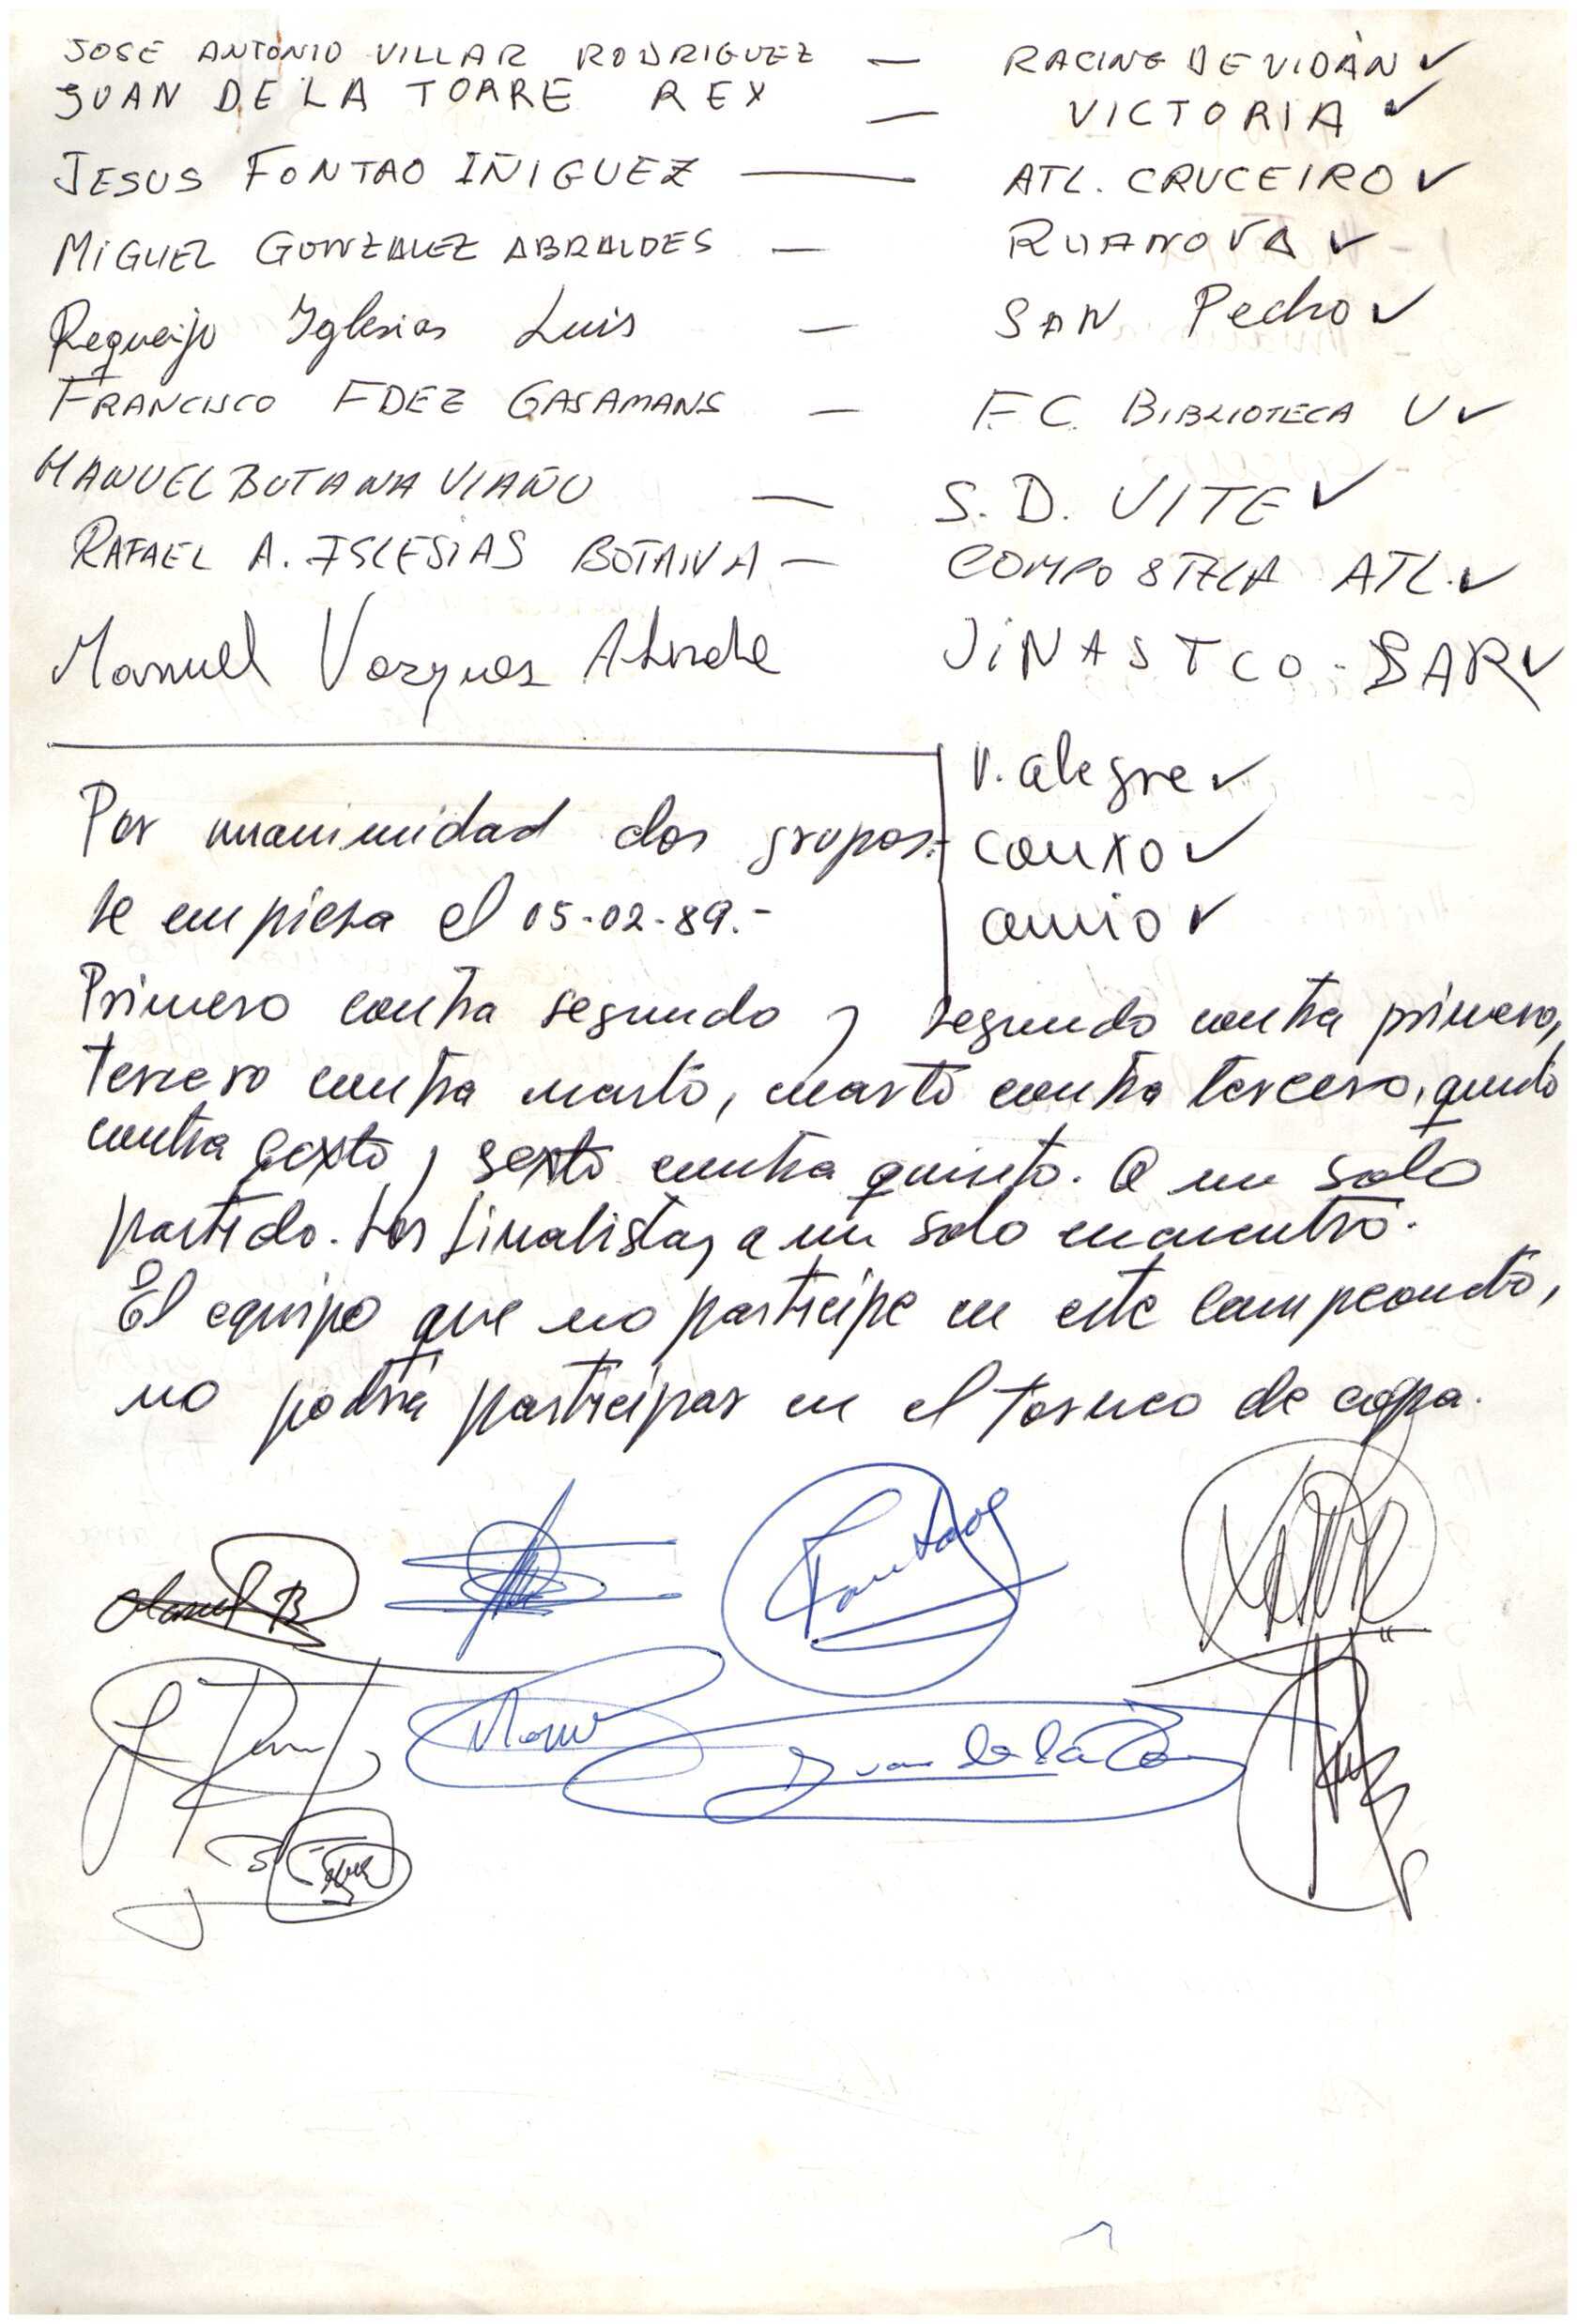 JOSE ANTONIO VILLAR RODRIGUEZ — RACING DE VIDÁN ✓
JUAN DE LA TORRE REX — VICTORIA ✓
JESUS FONTAO IÑIGUEZ — ATL. CRUCEIRO ✓
MIGUEL GONZALEZ ABRALDES — RUANOVA ✓
Requeijo Iglesias Luis — SAN Pedro ✓
FRANCISCO FDEZ CASAMANS — F.C. BIBLIOTECA U ✓
MANUEL BOTANA VIAÑO — S.D. VITE ✓
RAFAEL A. IGLESIAS BOTANA — COMPOSTELA ATL. ✓
Manuel Vazquez JINASTCO - SAR ✓
V. alegre ✓
Conxo ✓
amio ✓
Por unanimidad dos grupos.-
se empieza el 05-02-89.-
Primero contra segundo y segundo contra primero,
tercero contra cuarto, cuarto contra tercero, quinto
contra sexto y sexto contra quinto. A un solo
partido. Los finalistas, a un solo encuentro.
El equipo que no participe en este campeonato,
no podrá participar en el torneo de copa.
Manuel B
Fontao
Manu
Juan de la To